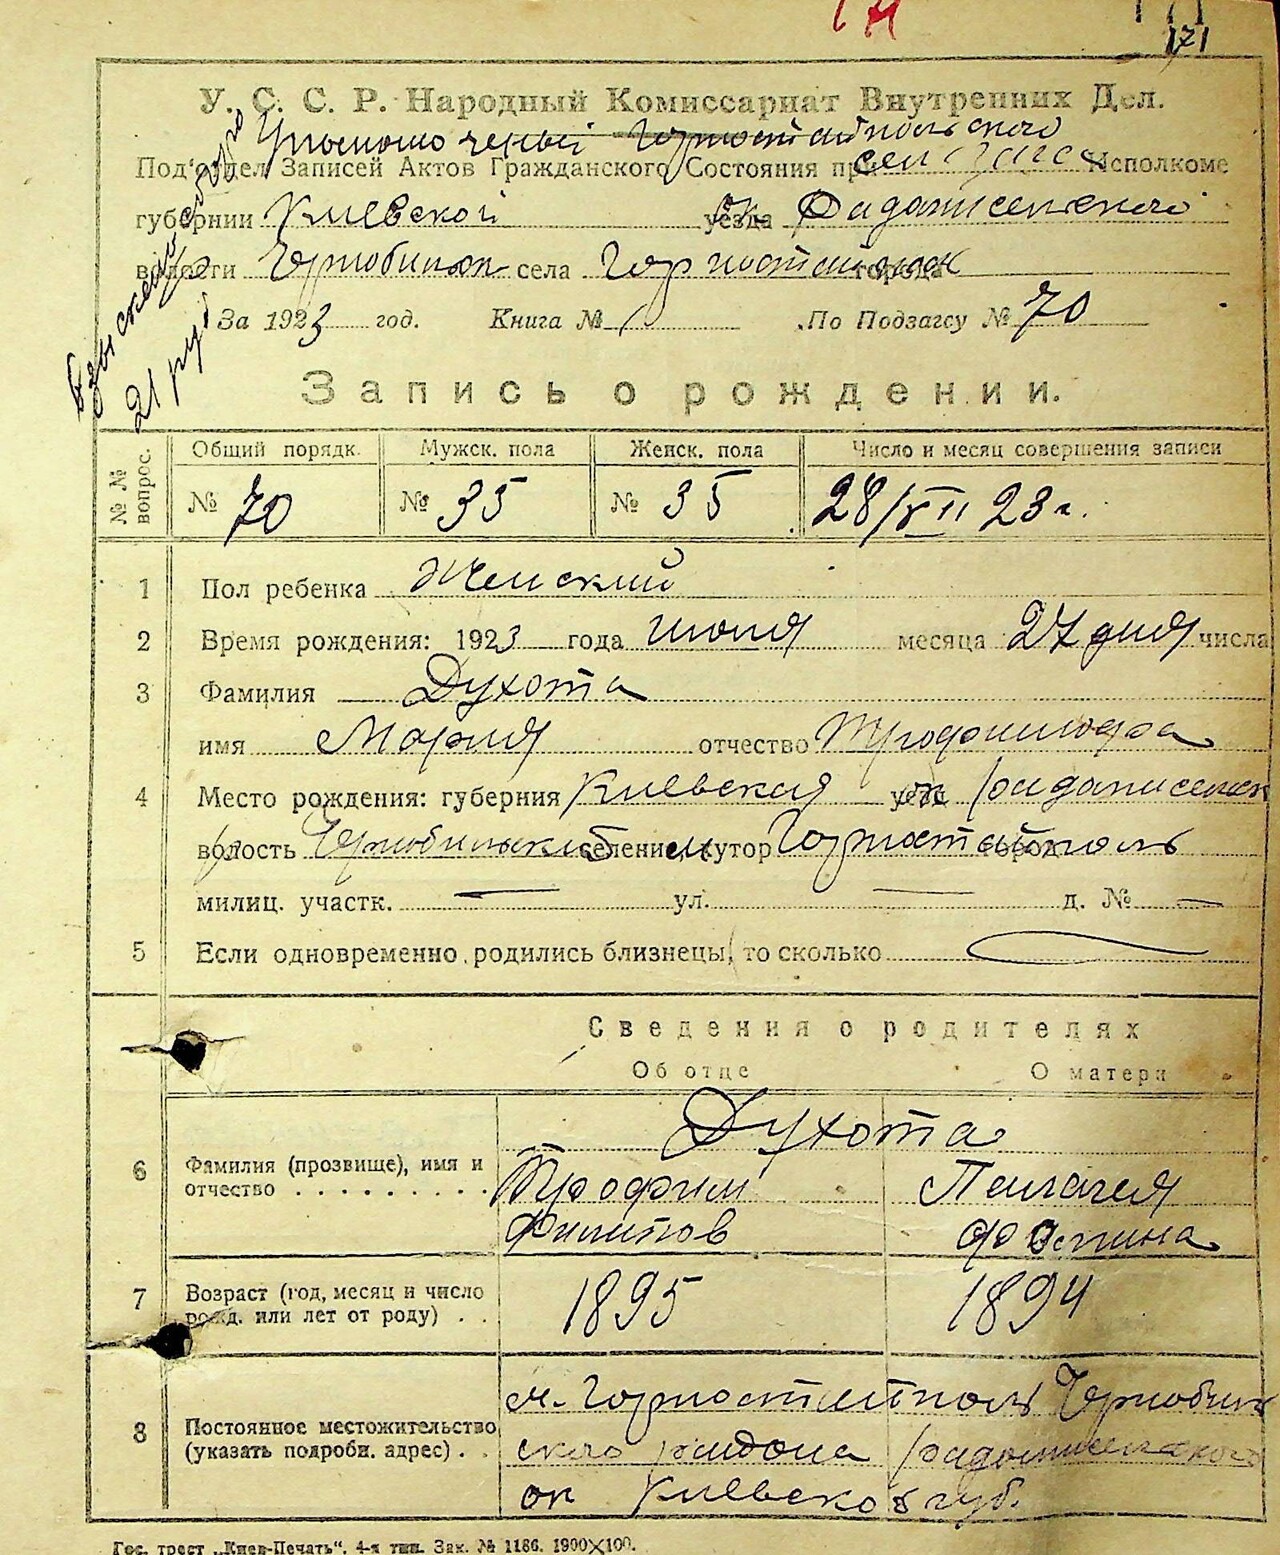 171
У. С. С. Р. Народный Комиссариат Внутренних Дел.
Горностайпольского
Под'отдел Записей Актов Гражданского Состояния при Исполкоме
губернии Киевской уезда Радомысельского
волости Чернобыльск села Горностайполь города
Взыскано
21 руб
За 1923 год. Книга № 1 По Подзагсу № 70
Запись о рождении.
№№ вопрос. Общий порядк. Мужск. пола Женск. пола Число и месяц совершения записи
№ 70 № 35 № 35 28/VII 23 г.
1 Пол ребенка Женский
2 Время рождения: 1923 года июля месяца 27 дня числа
3 Фамилия Духота
имя Мария отчество Трофимовра
4 Место рождения: губерния Киевская ок Радомысельск
волость Чернобыльский селение, хутор Горностайполь
милиц. участк. — ул. — д. № —
5 Если одновременно родились близнецы, то сколько
Сведения о родителях
Об отце О матери
Духота
6 Фамилия (прозвище), имя и Трофим Пелагея
отчество . . . . . . . . . Филипов
7 Возраст (год, месяц и число 1895 1894
рожд. или лет от роду) . .
м. Горностайполь Чернобыль
8 Постоянное местожительство ского района Радомысельского
(указать подробн. адрес) . .
ок Киевской губ.
Гос. трест „Киев-Печать“. 4-я тип. Зак. № 1186. 1900×100.